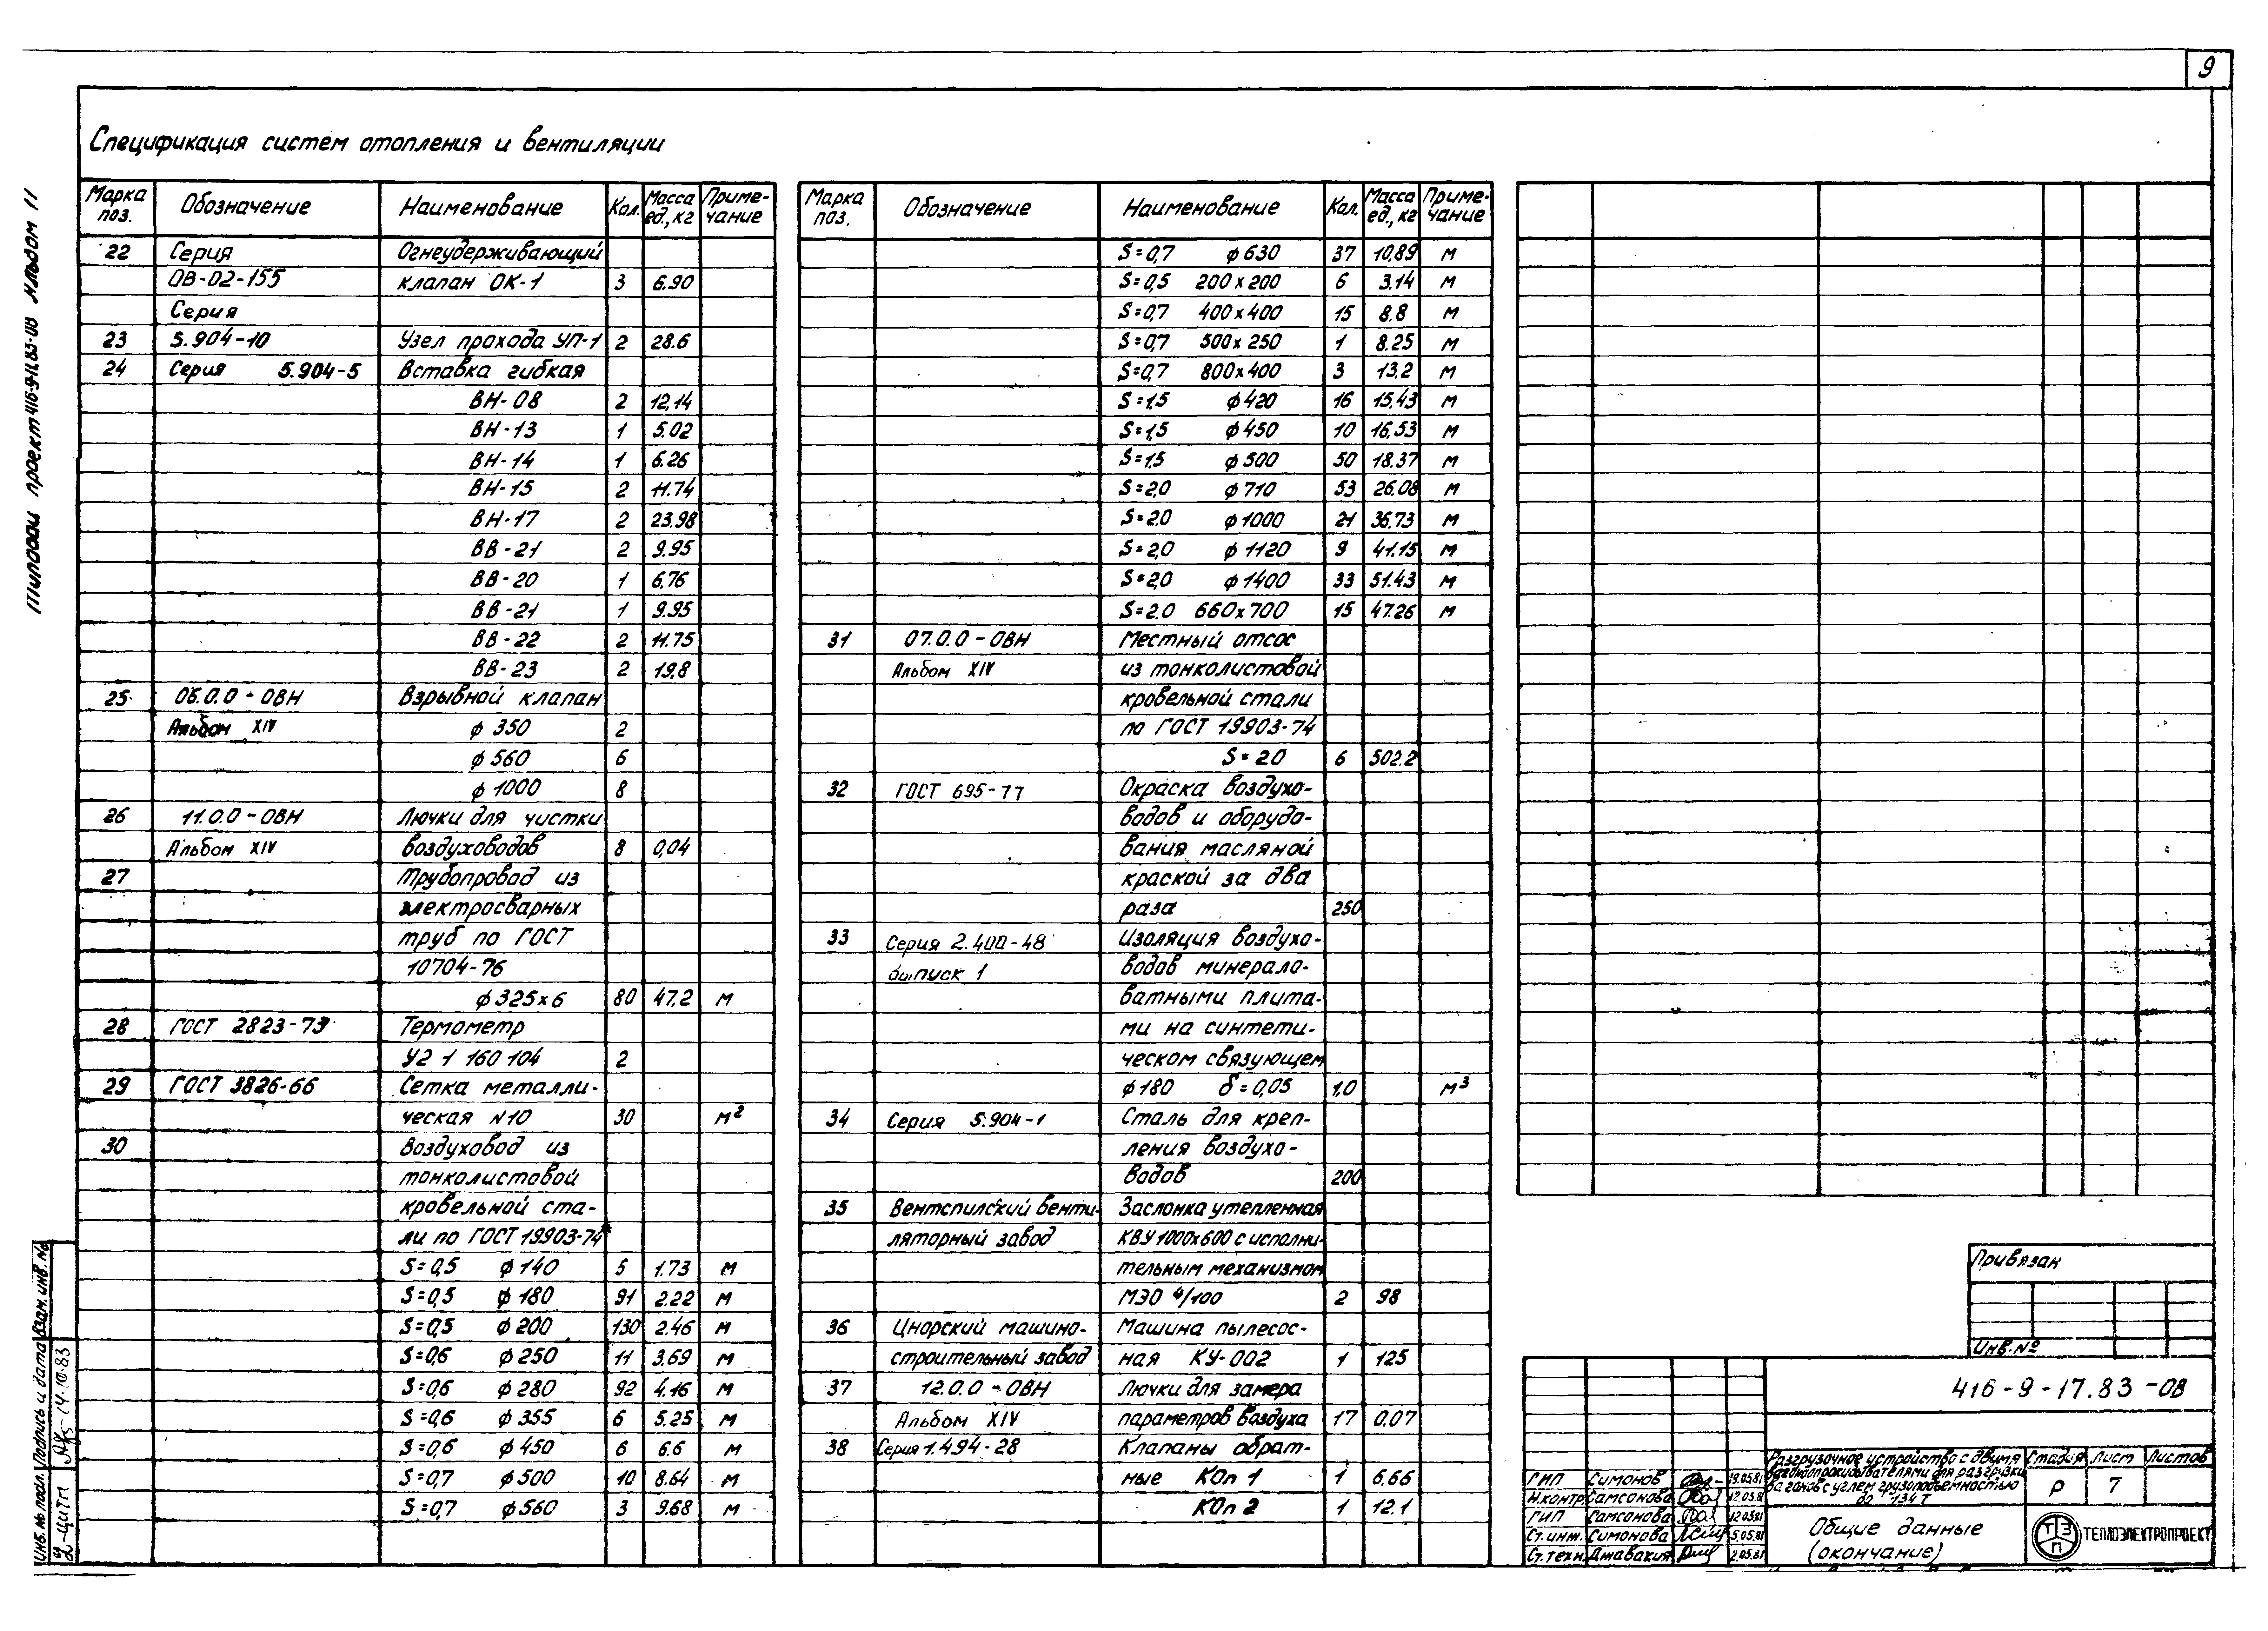 9
Спецификация систем отопления и вентиляции
Типовой проект 416-9-17.83-ОВ Альбом 11
Марка поз. Обозначение Наименование Кол. Масса ед., кг Примечание
22 Серия Огнеудерживающий
ОВ-02-155 клапан ОК-1 3 6.90
Серия
23 5.904-10 Узел прохода УП-1 2 28.6
24 Серия 5.904-5 Вставка гибкая
ВН-08 2 12,14
ВН-13 1 5.02
ВН-14 1 6.26
ВН-15 2 11.74
ВН-17 2 23.98
ВВ-21 2 9.95
ВВ-20 1 6,76
ВВ-21 1 9.95
ВВ-22 2 11.75
ВВ-23 2 19,8
25 06.0.0-ОВН Взрывной клапан
Альбом XIV ф 350 2
ф 560 6
ф 1000 8
26 11.0.0-ОВН Лючки для чистки
Альбом XIV воздуховодов 8 0,04
27 Трубопровод из
электросварных
труб по ГОСТ
10704-76
ф 325х6 80 47,2 м
28 ГОСТ 2823-73 Термометр
У2 1 160 104 2
29 ГОСТ 3826-66 Сетка металли-
ческая N10 30 м²
30 Воздуховод из
тонколистовой
кровельной ста-
ли по ГОСТ 19903-74
S=0,5 ф 140 5 1.73 м
S=0,5 ф 180 91 2.22 м
S=0,5 ф 200 130 2.46 м
S=0,6 ф 250 11 3.69 м
S=0,6 ф 280 92 4.16 м
S=0,6 ф 355 6 5.25 м
S=0,6 ф 450 6 6.6 м
S=0,7 ф 500 10 8.64 м
S=0,7 ф 560 3 9.68 м
Марка поз. Обозначение Наименование Кол. Масса ед., кг Примечание
S=0,7 ф 630 37 10,89 м
S=0,5 200х200 6 3.14 м
S=0,7 400х400 15 8.8 м
S=0,7 500х250 1 8.25 м
S=0,7 800х400 3 13.2 м
S=1,5 ф 420 16 15.43 м
S=1,5 ф 450 10 16.53 м
S=1,5 ф 500 50 18.37 м
S=2,0 ф 710 53 26.08 м
S=2.0 ф 1000 21 36.73 м
S=2,0 ф 1120 9 41.15 м
S=2,0 ф 1400 33 51.43 м
S=2.0 660х700 15 47.26 м
31 07.0.0-ОВН Местный отсос
Альбом XIV из тонколистовой
кровельной стали
по ГОСТ 19903-74
S=2.0 6 502.2
32 ГОСТ 695-77 Окраска воздухо-
водов и оборудо-
вания масляной
краской за два
раза 250
33 Серия 2.400-48 Изоляция воздухо-
выпуск 1 водов минерало-
ватными плита-
ми на синтети-
ческом связующем
ф 180 δ=0,05 1,0 м³
34 Серия 5.904-1 Сталь для креп-
ления воздухо-
водов 200
35 Вентспилский венти- Заслонка утепленная
ляторный завод КВУ 1000х600 с исполни-
тельным механизмом
МЭО 4/100 2 98
36 Цнорский машино- Машина пылесос-
строительный завод ная КУ-002 1 125
37 12.0.0-ОВН Лючки для замера
Альбом XIV параметров воздуха 17 0.07
38 Серия 1.494-28 Клапаны обрат-
ные КОп 1 1 6.66
КОп 2 1 12.1
Привязан
Инв. №
416-9-17.83-ОВ
Разгрузочное устройство с двумя
вагоноопрокидывателями для разгрузки
вагонов с углем грузоподъемностью
до 134 т
Стадия Лист Листов
Р 7
ГИП Симонов 19.05.81
Н.контр. Самсонова 12.05.81
ГИП Самсонова 12.05.81
Ст. инж. Симонова 5.05.81
Ст. техн. Джавахия 2.05.81
Общие данные
(окончание)
ТЭП
ТЕПЛОЭЛЕКТРОПРОЕКТ
Инв. № подл. Подпись и дата Взам. инв. №
14.10.83